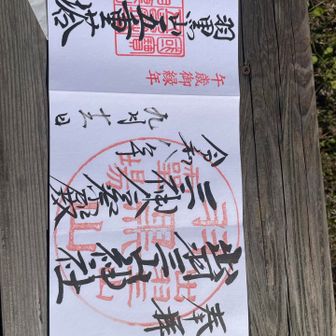 奉拝
出羽三山神社
三神合祭殿
令和八年
九月
羽黒山
五重塔
午歳御縁年